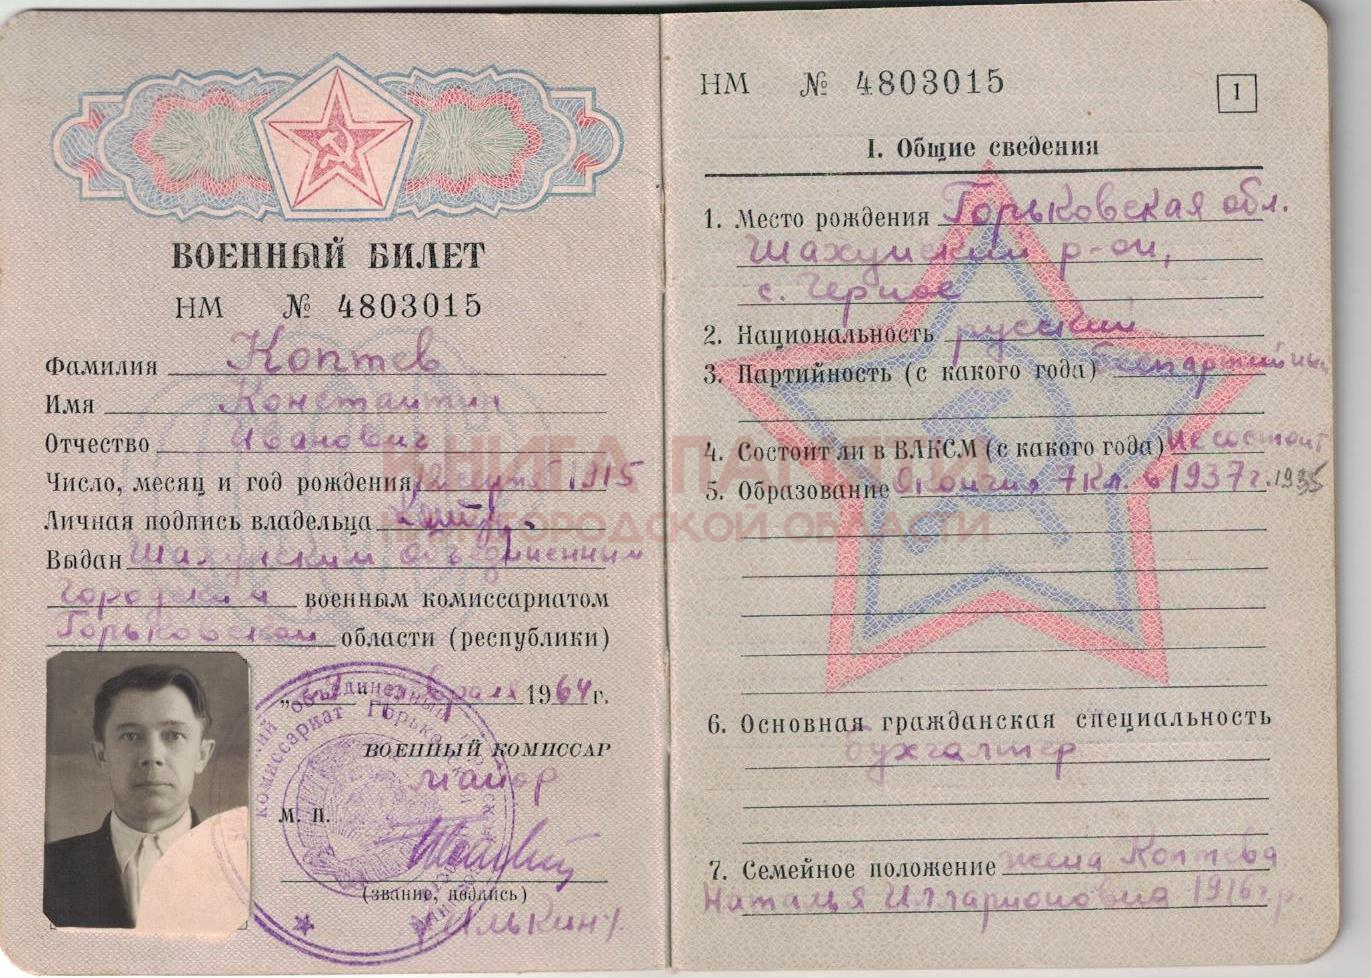 ВОЕННЫЙ БИЛЕТ
НМ № 4803015
Фамилия Коптев
Имя Константин
Отчество Иванович
Число, месяц и год рождения 1915
Личная подпись владельца
Выдан Шахунским объединенным
городским военным комиссариатом
Горьковской области (республики)
1964 г.
ВОЕННЫЙ КОМИССАР
майор
М. П.
(звание, подпись)
НМ № 4803015
1
I. Общие сведения
1. Место рождения Горьковская обл.
Шахунский р-он,
с. Черное
2. Национальность русский
3. Партийность (с какого года) беспартийный
4. Состоит ли в ВЛКСМ (с какого года) не состоит
5. Образование Окончил 7 кл. в 1937 г. 1935
6. Основная гражданская специальность
Бухгалтер
7. Семейное положение жена Коптева
Наталья Илларионовна 1916 г.р.
КНИГА ПАМЯТИ
НИЖЕГОРОДСКОЙ ОБЛАСТИ